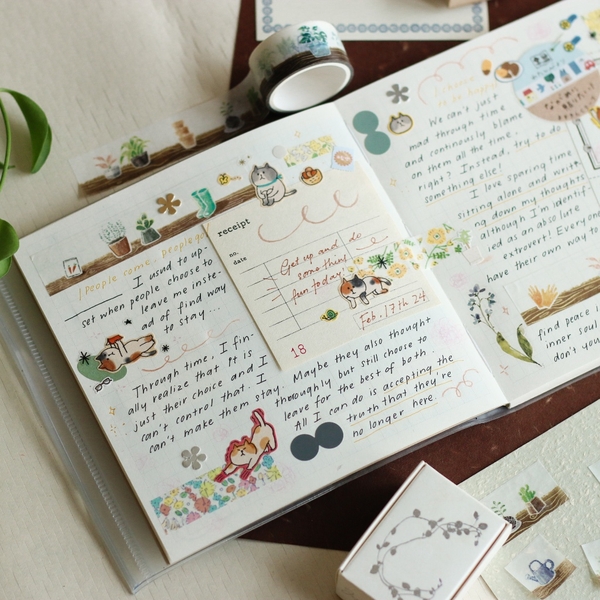 (People come, people go)
I usud to up
set when people choose to
leave me inste-
ad of find way
to stay...
Through time, I fin-
ally realize that it is
just their choice and I
can't control that. I
can't make them stay.
receipt
no.
date
Get up and do
some thing
fun today!
Feb. 17th 24.
18
Maybe they also thought
thoroughly but still choose to
leave for the best of both.
All I can do is accepting the
truth that they're
no longer here.
We can't just
mad through time
and continously blame
on them all the time.
right? Instead, try to do
something else!
I love sparing time
sitting alone and writ-
ing down my thoughts
although I m identif-
ied as an absolute
extrovert. Everyone
have their own way to
find peace i
inner soul
don't you